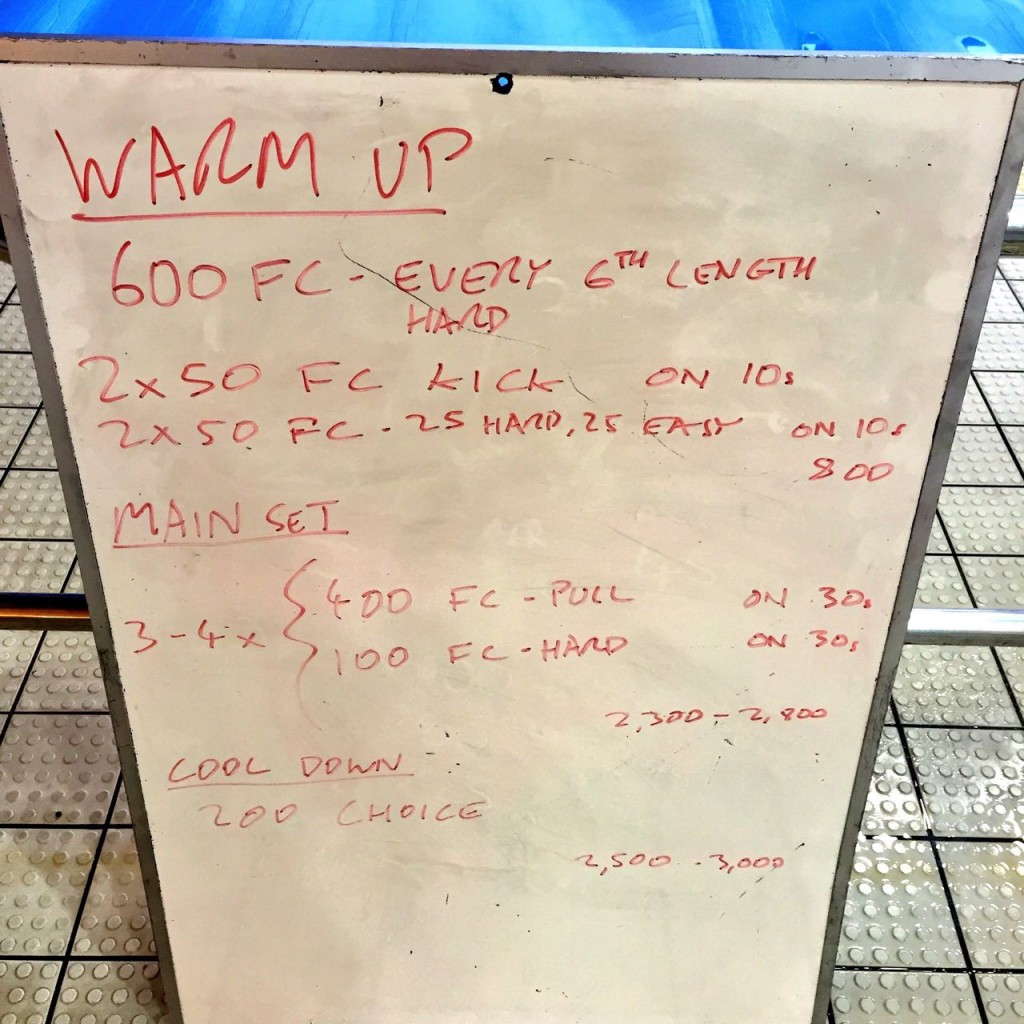 WARM UP
600 FC - EVERY 6TH LENGTH
HARD
2x50 FC KICK ON 10s
2x50 FC - 25 HARD, 25 EASY ON 10s
800
MAIN SET
3-4x { 400 FC - PULL ON 30s
100 FC - HARD ON 30s
2,300 - 2,800
COOL DOWN
200 CHOICE
2,500 - 3,000